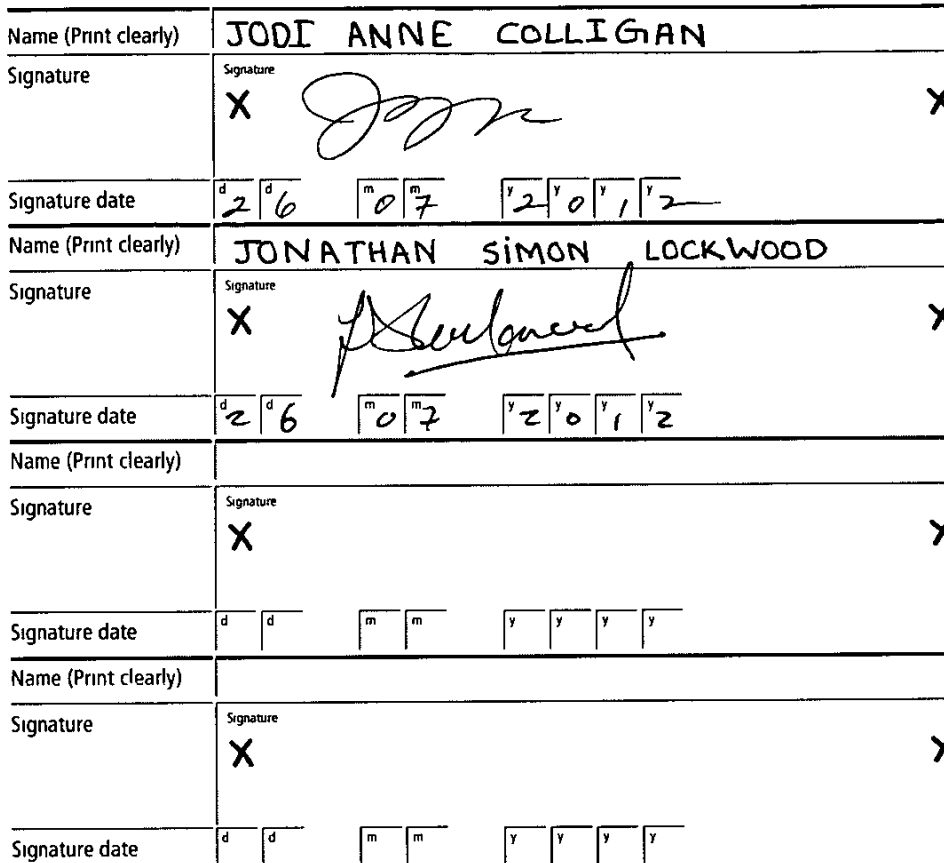 Name (Print clearly) JODI ANNE COLLIGAN
Signature Signature
X X
Signature date d 2 d 6 m 0 m 7 y 2 y 0 y 1 y 2
Name (Print clearly) JONATHAN SiMON LOCKWOOD
Signature Signature
X X
Signature date d 2 d 6 m 0 m 7 y 2 y 0 y 1 y 2
Name (Print clearly)
Signature Signature
X X
Signature date d d m m y y y y
Name (Print clearly)
Signature Signature
X X
Signature date d d m m y y y y